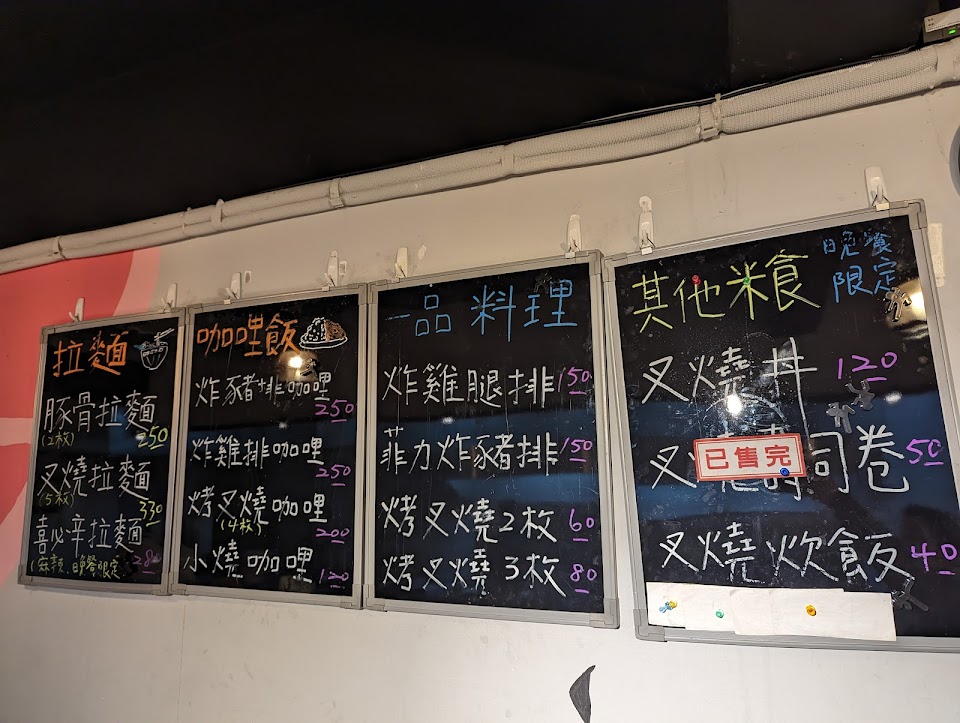 拉麵
豚骨拉麵
(2枚) 250
叉燒拉麵
(5枚) 330
喜心辛拉麵
(麻辣、晚餐限定) 280
咖哩飯
炸豬排咖哩
250
炸雞排咖哩
250
烤叉燒咖哩
(4枚) 200
小燒咖哩
120
一品料理
炸雞腿排 150
菲力炸豬排 150
烤叉燒2枚 60
烤叉燒3枚 80
其他米食
晚餐
限定
叉燒丼 120
叉燒壽司卷 50
已售完
叉燒炊飯 40